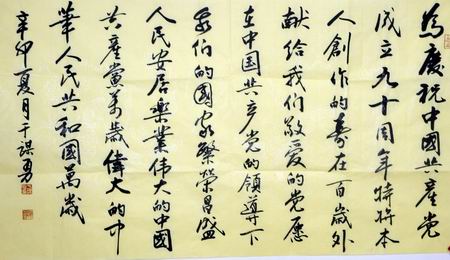 為慶祝中國共產党
成立九十周年特將本
人創作的壽在百歲外
献给我们敬爱的党愿
在中国共产党的领導下
我们的國家繁榮昌盛
人民安居樂業伟大的中國
共產黨萬歲偉大的中
華人民共和國萬歲
辛卯夏月于